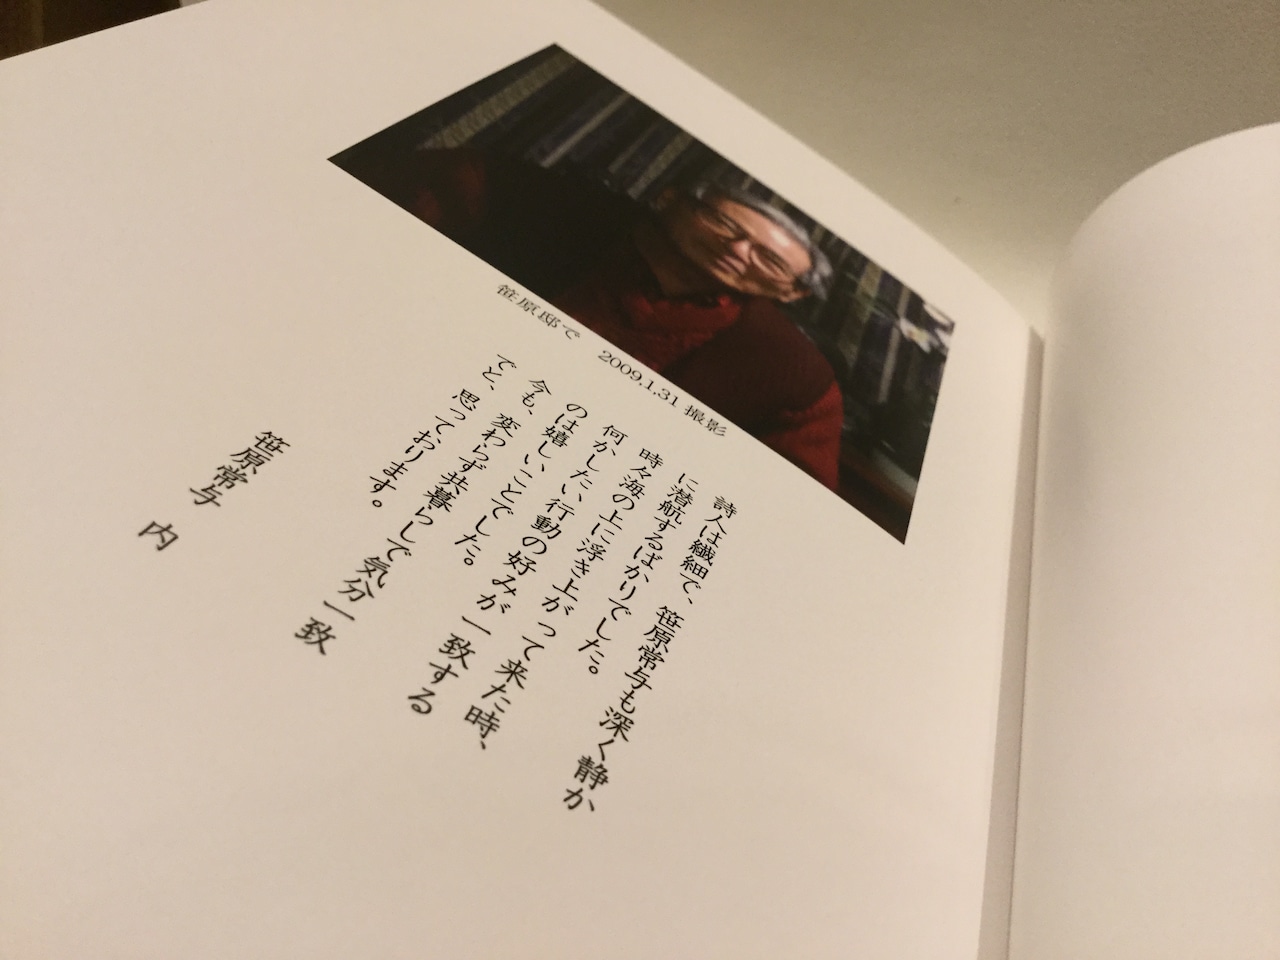 笹原邸で　2009.1.31 撮影
詩人は繊細で、笹原常与も深く静か
に潜航するばかりでした。
時々海の上に浮き上がって来た時、
何かしたい行動の好みが一致する
のは嬉しいことでした。
今も、変わらず共暮らしで気分一致
でと、思っております。
笹原常与　内